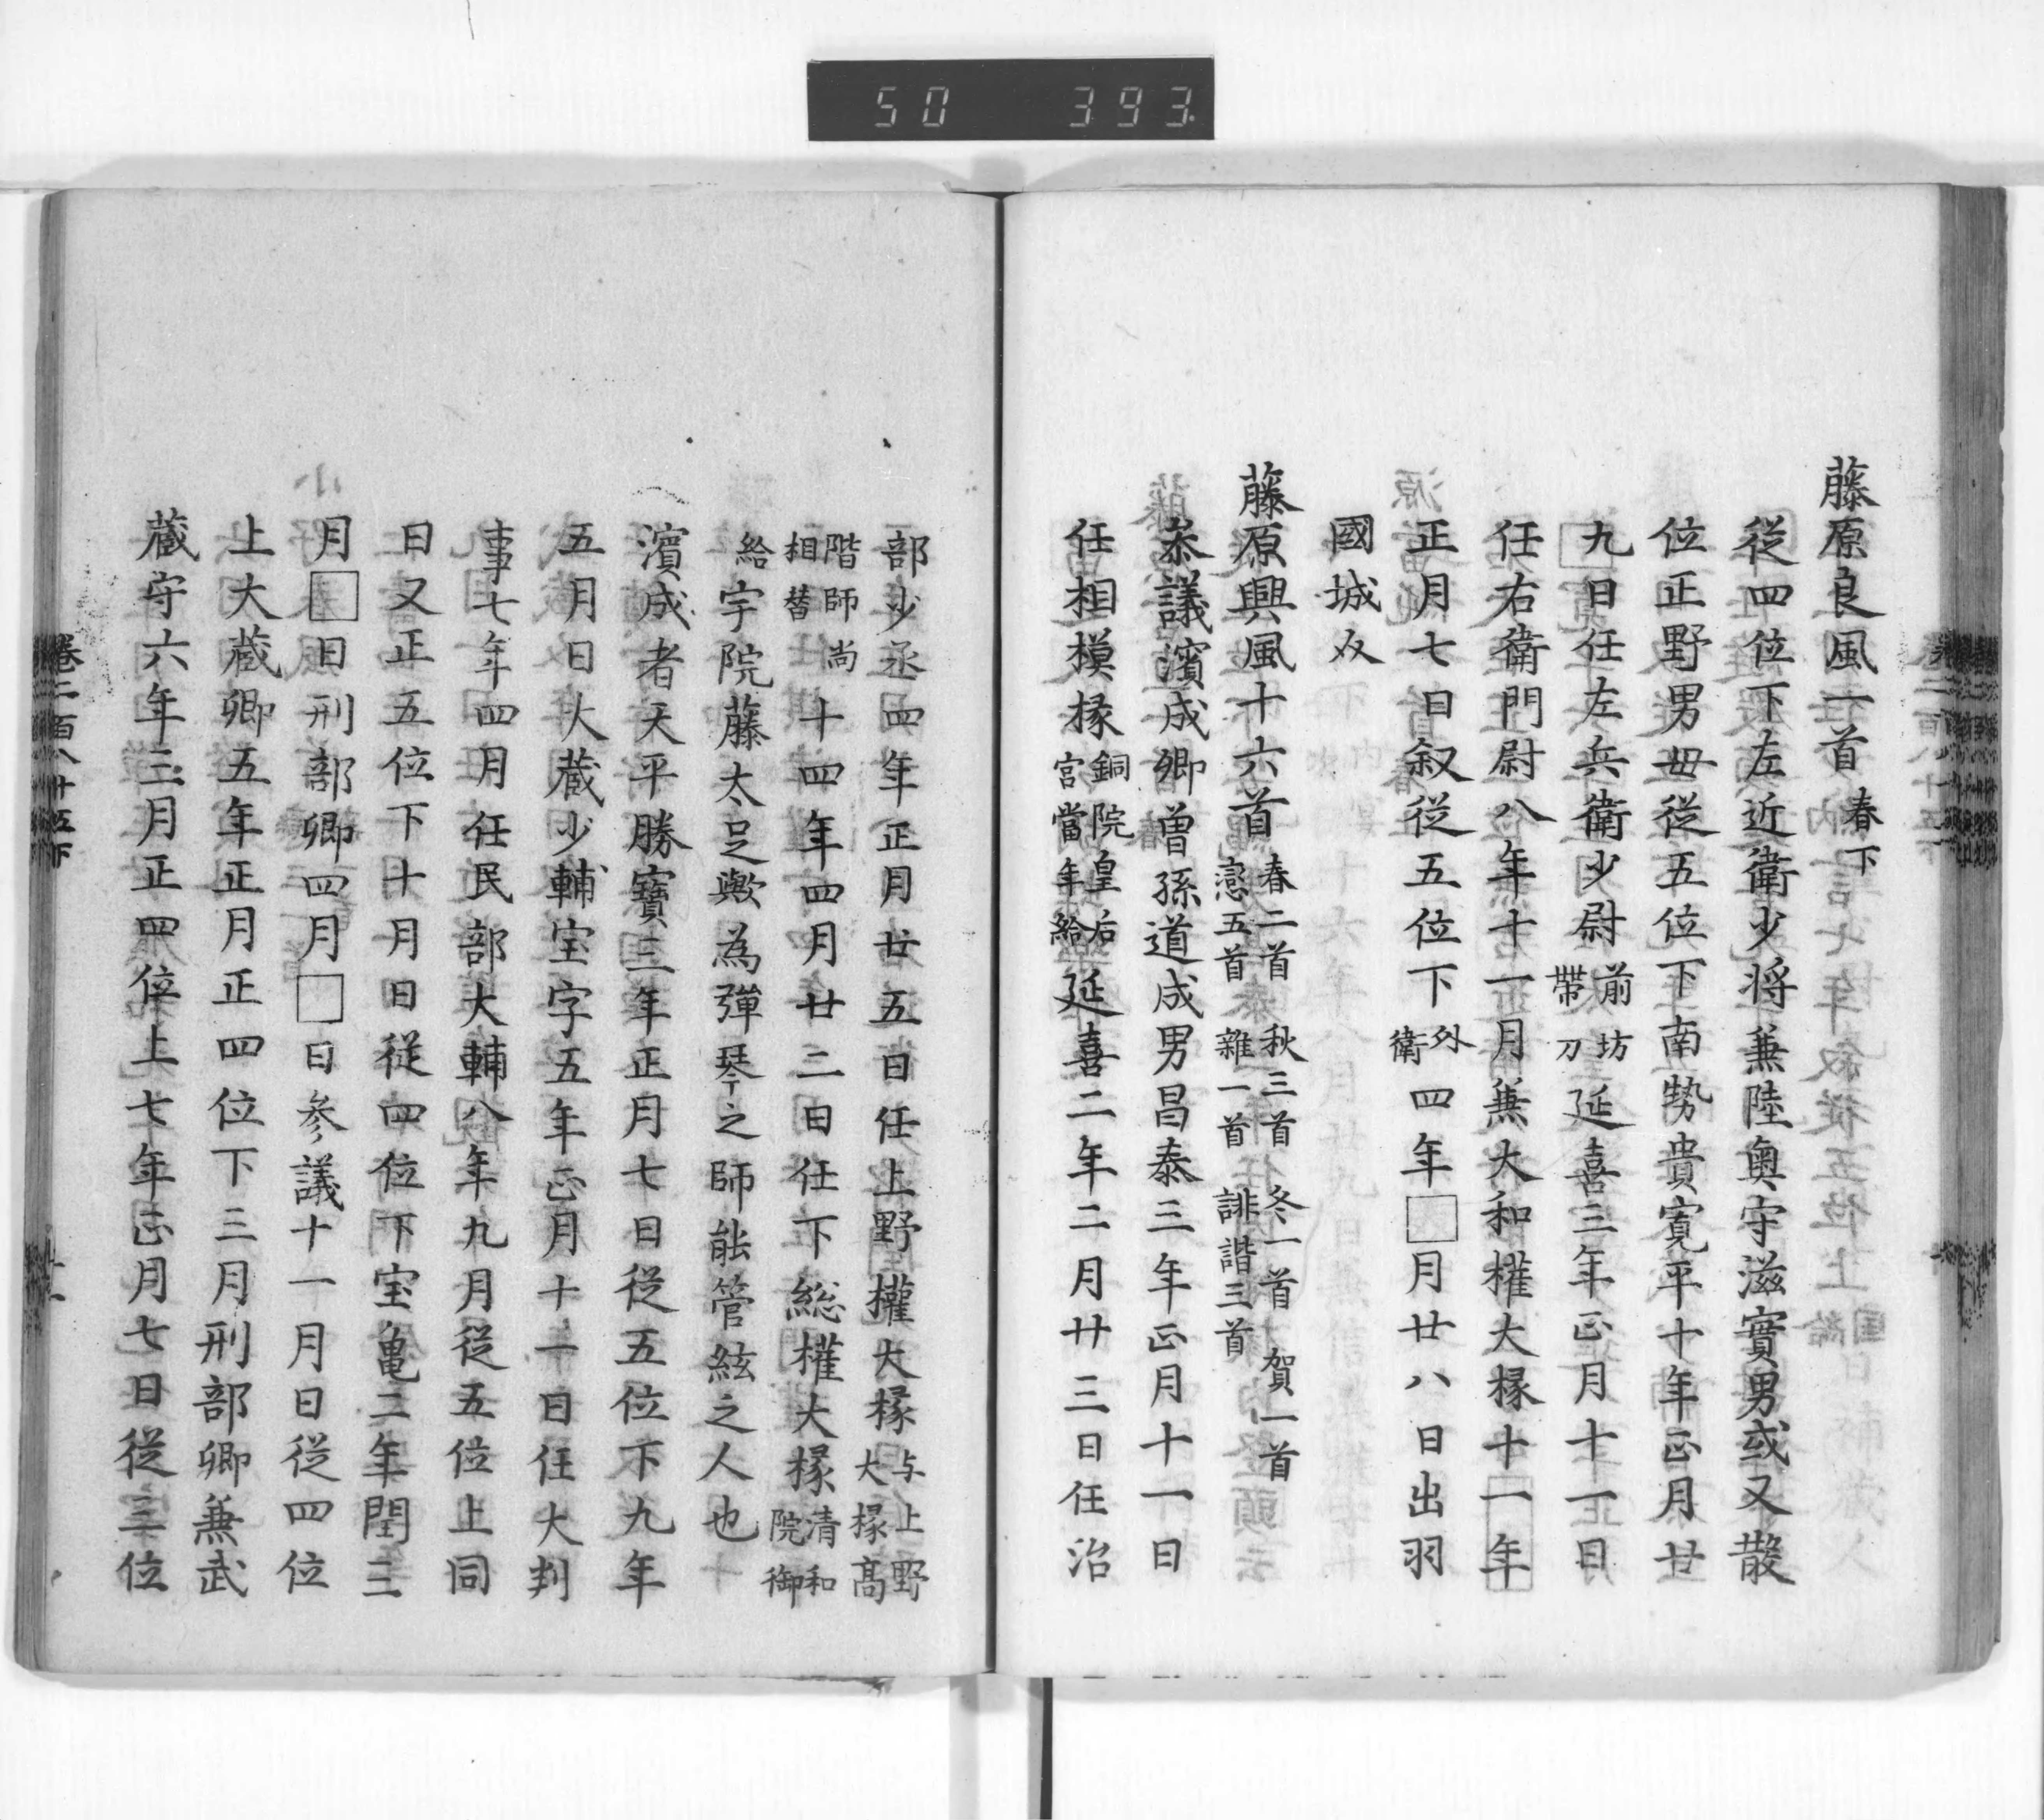 50 393
藤原良風一首 春下
従四位下左近衛少将兼陸奥守滋實男或又散
位正野男毋従五位下南㔟貴寛平十年正月廿
九日任左兵衛少尉 前坊 帶刀 延喜三年正月十一日
任右衛門尉八年十一月兼大和權大掾十一年
正月七日叙従五位下 外衛 四年□月廿八日出羽
國城
藤原興風十六首 春二首 秋三首 冬一首 賀一首 戀五首 雜一首 誹諧三首
叅議濱成卿曽孫道成男昌泰三年正月十一日
任相摸掾 銅院皇后宮當年給 延喜二年二月廿三日任治
部少丞四年正月廿五日任上野權大掾 与上野大掾髙
階師尚相替 十四年四月廿二日任下総權大掾 清和院御
給 宇院藤太㝎歟為彈琴之師能管絃之人也
濱成者天平勝寶三年正月七日従五位下九年
五月日大藏少輔宝字五年正月十一日任大判
事七年四月任民部大輔八年九月従五位上同
日又正五位下十月日従四位下宝亀二年閏三
月□日刑部卿四月□日参議十一月日従四位
上大藏卿五年正月正四位下三月刑部卿兼武
藏守六年三月正四位上七年正月七日従三位
巻二百八十五下